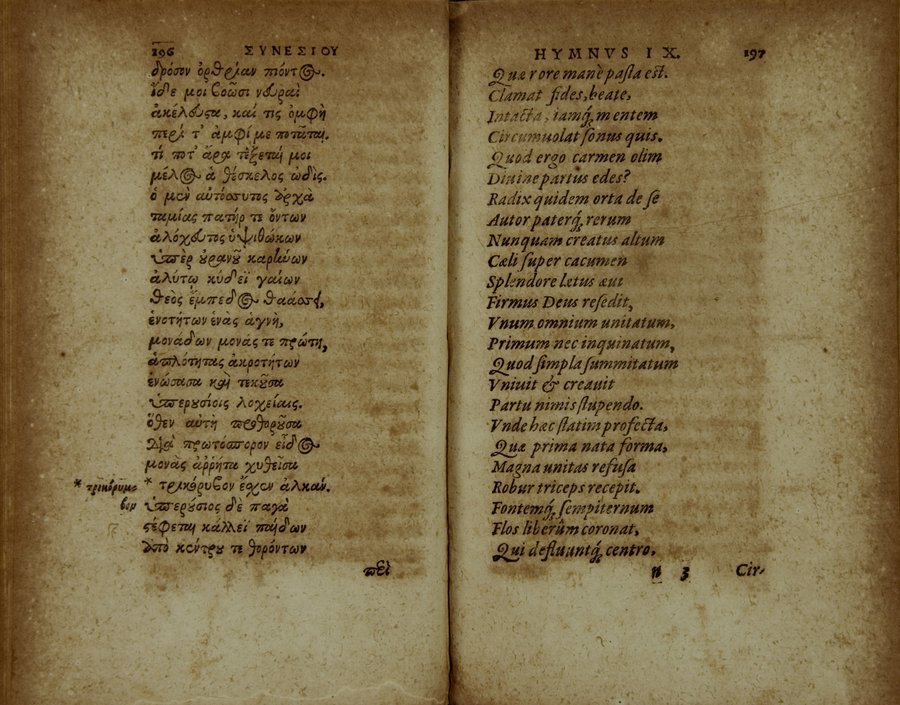 196 ΣΥΝΕΣΙΟΥ
δρόσον ὀρθρίαν πιόντος.
ἴδε μοι βοῶσι νευραὶ
ἀκέλευστα, καί τις ὀμφὴ
περί τ' ἀμφί με ποτᾶται.
τί ποτ' ἄρα τέξεταί μοι
μέλος ἁ θέσκελος ὠδίς.
ὁ μὲν αὐτόσσυτος ἀρχὰ
ταμίας πατήρ τε ὄντων
ἀλόχευτος ὑψιθώκων
ὑπὲρ οὐρανοῦ καρήνων
ἀλύτῳ κύδεϊ γαίων
θεὸς ἔμπεδος θαάσσει,
ἑνοτήτων ἑνὰς ἁγνὴ,
μονάδων μονάς τε πρώτη,
ἁπλότητας ἀκροτήτων
ἑνώσασα καὶ τεκοῦσα
ὑπερουσίοις λοχείαις.
ὅθεν αὐτὴ προθοροῦσα
διὰ πρωτόσπορον εἶδος
μονὰς ἄῤῥητα χυθεῖσα
* τρικόρυμβον ἔσχεν ἀλκάν.
* τρικόρυμβον
ὑπερούσιος δὲ παγὰ
στέφεται κάλλεϊ παίδων
ἀπὸ κέντρου τε θορόντων
πεὶ
HYMNVS IX. 197
Quæ rore manè pasta est.
Clamat fides, beate,
Intacta, iamq́, mentem
Circumuolat sonus quis.
Quod ergo carmen olim
Diuine partus edes?
Radix quidem orta de se
Autor paterq́, rerum
Nunquam creatus altum
Cæli super cacumen
Splendore letus æui
Firmus Deus resedit,
Vnum omnium unitatum,
Primum nec inquinatum,
Quod simpla summitatum
Vniuit & creauit
Partu nimis stupendo.
Vnde hæc statim profecta,
Quæ prima nata forma,
Magna unitas refusa
Robur triceps recepit.
Fontemq́, sempiternum
Flos liberûm coronat,
Qui defluuntq́, centro,
n 3 Cir-